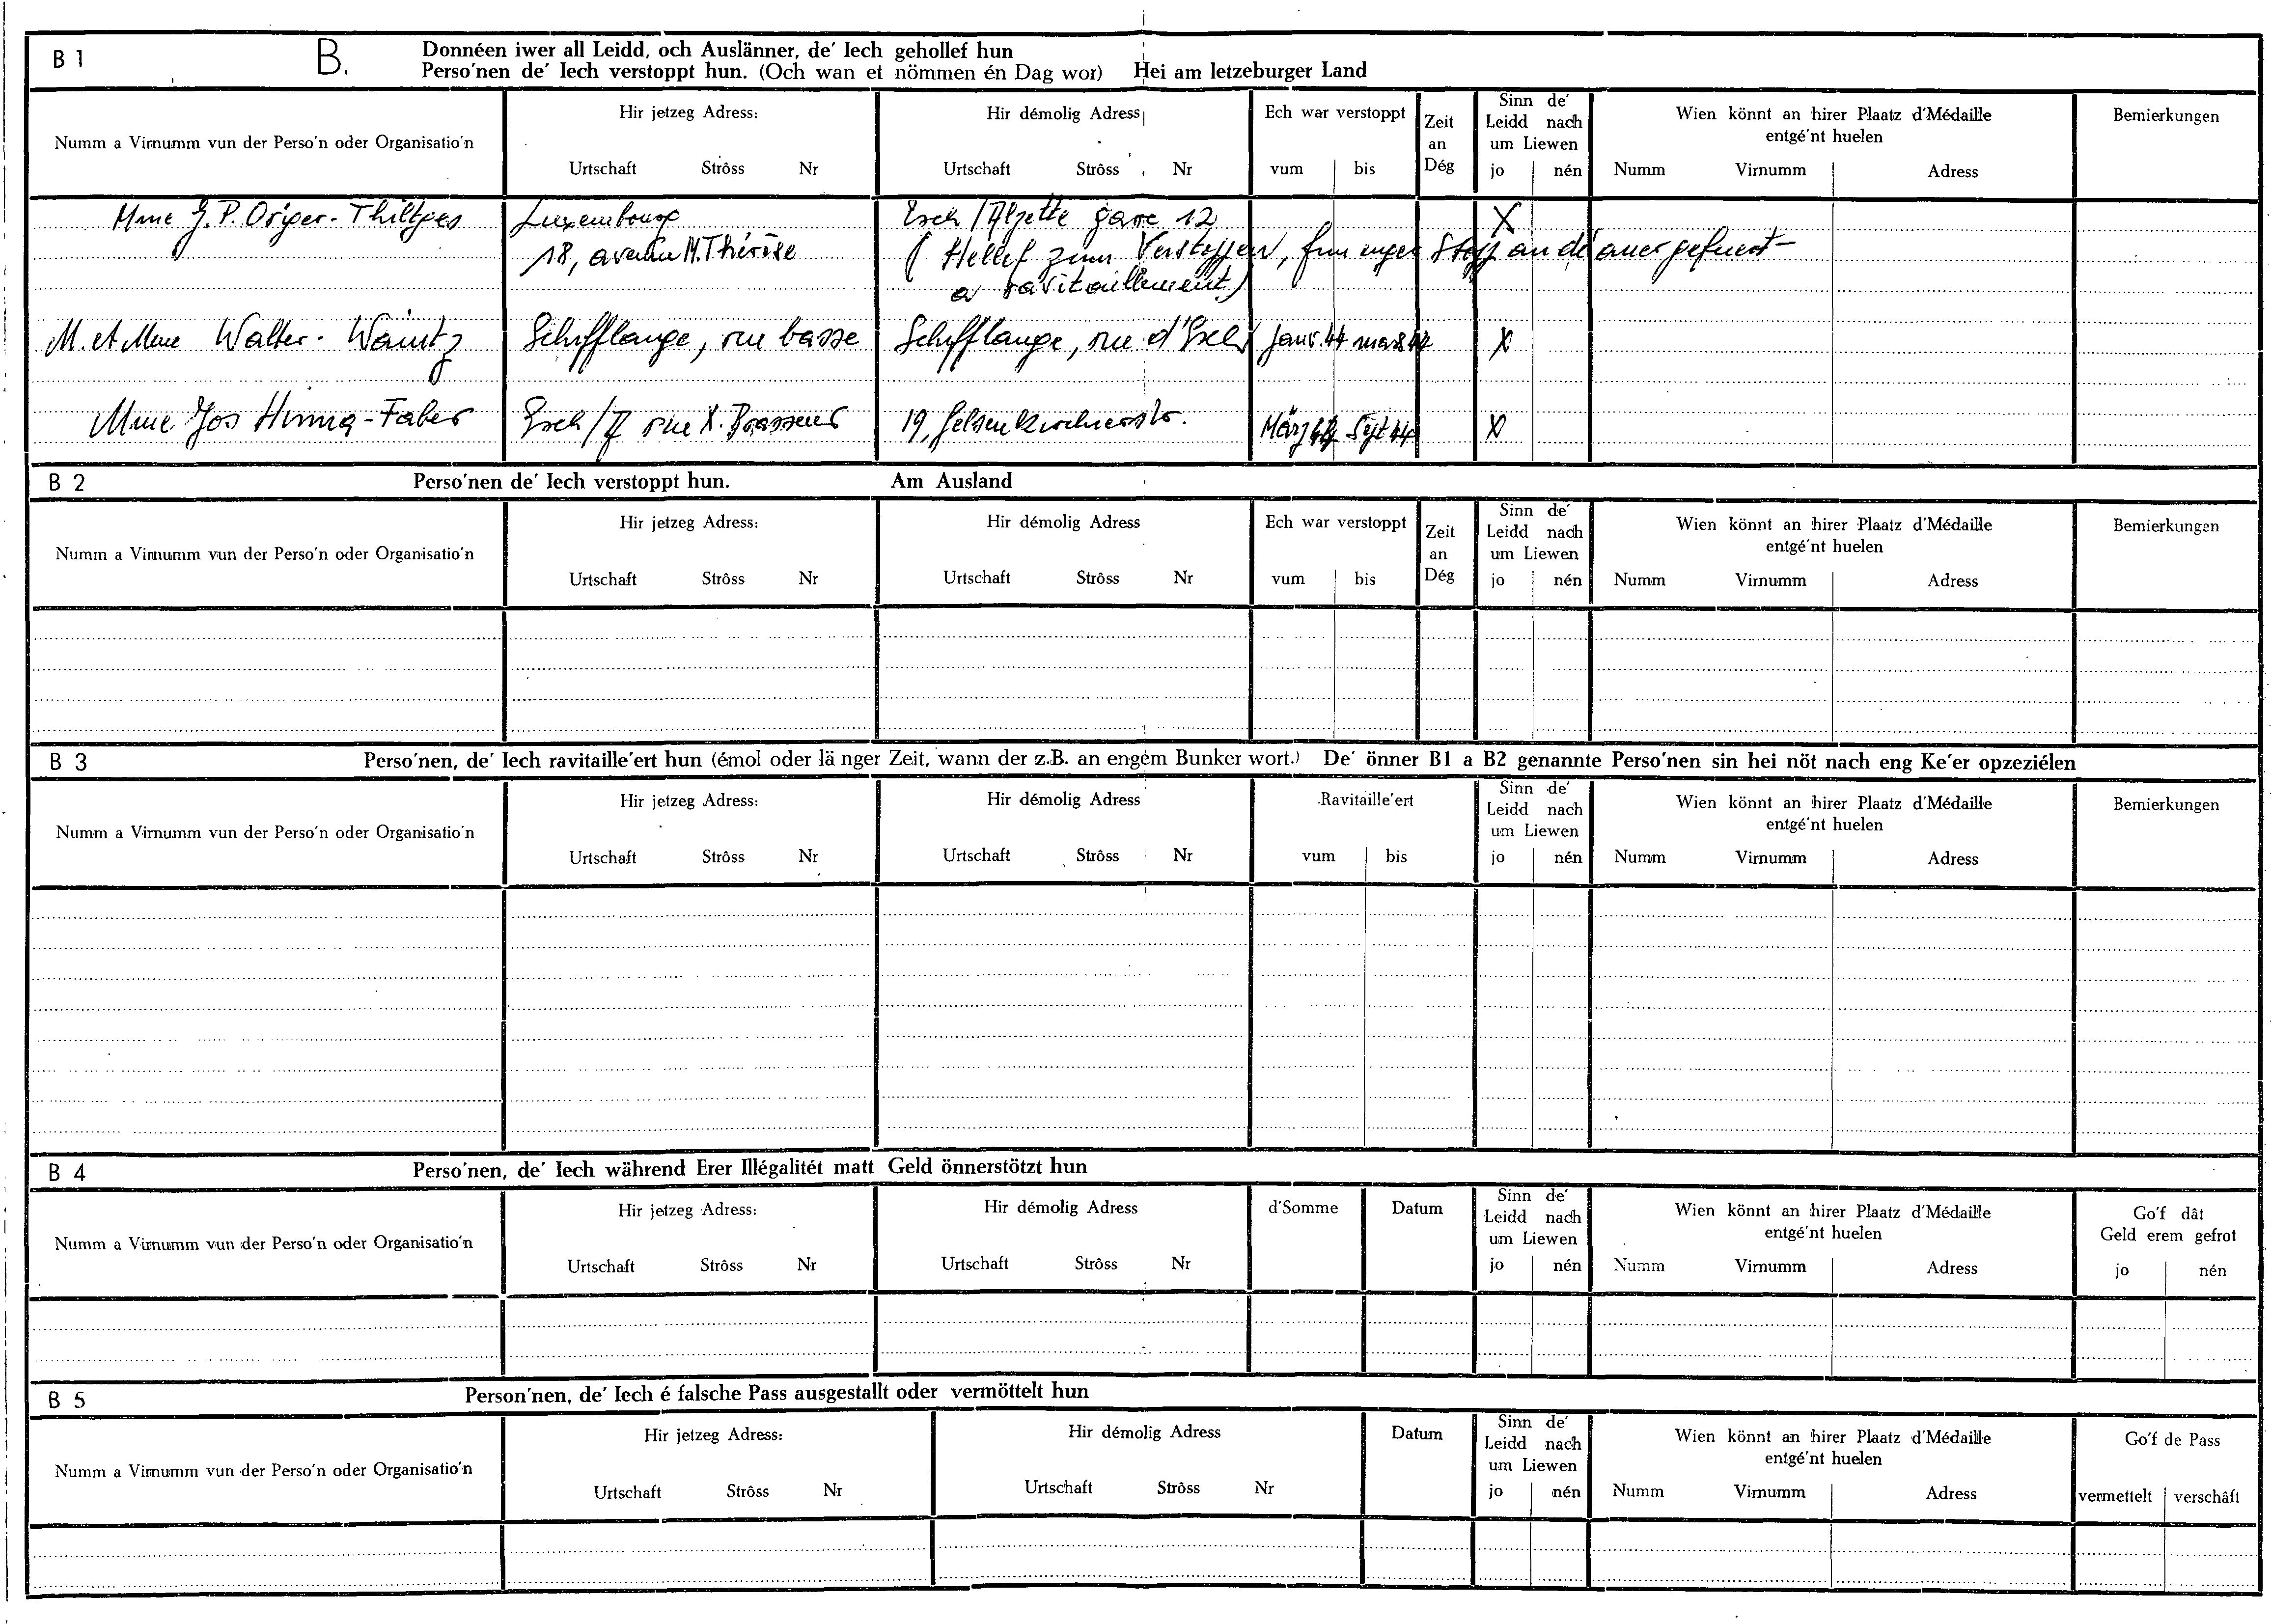 B 1 B. Donnéen iwer all Leidd, och Auslänner, de' Iech gehollef hun
Perso'nen de' Iech verstoppt hun. (Och wan et nömmen én Dag wor) Hei am letzeburger Land
Numm a Virnumm vun der Perso'n oder Organisatio'n
Hir jetzeg Adress:
Urtschaft Strôss Nr
Hir démolig Adress
Urtschaft Strôss Nr
Ech war verstoppt
vum bis
Zeit
an
Dég
Sinn de'
Leidd nach
um Liewen
jo nén
Wien könnt an hirer Plaatz d'Médaille
entgé'nt huelen
Numm Virnumm Adress
Bemierkungen
Mme J.P. Origer-Thiltges Luxembourg Esch/Alzette gare 12 X
18, avenue M. Thérèse ( Hellef zum Verstoppen, fun enger Stopp an déi aner gefuert-
a ravitaillement)
M. et Mme Walter- Schifflange, rue basse Schifflange, rue d'Esch Janv. 44 mars X
Mme Jos -Faber Esch/A rue X. Brasseur 19, Gelsenkirchnerstr. März Sept 44 X
B 2 Perso'nen de' Iech verstoppt hun. Am Ausland
Numm a Virnumm vun der Perso'n oder Organisatio'n
Hir jetzeg Adress:
Urtschaft Strôss Nr
Hir démolig Adress
Urtschaft Strôss Nr
Ech war verstoppt
vum bis
Zeit
an
Dég
Sinn de'
Leidd nach
um Liewen
jo nén
Wien könnt an hirer Plaatz d'Médaille
entgé'nt huelen
Numm Virnumm Adress
Bemierkungen
B 3 Perso'nen, de' Iech ravitaille'ert hun (émol oder länger Zeit, wann der z.B. an engem Bunker wort.) De' önner B1 a B2 genannte Perso'nen sin hei nöt nach eng Ke'er opzeziélen
Numm a Virnumm vun der Perso'n oder Organisatio'n
Hir jetzeg Adress:
Urtschaft Strôss Nr
Hir démolig Adress
Urtschaft Strôss Nr
Ravitaille'ert
vum bis
Sinn de'
Leidd nach
um Liewen
jo nén
Wien könnt an hirer Plaatz d'Médaille
entgé'nt huelen
Numm Virnumm Adress
Bemierkungen
B 4 Perso'nen, de' Iech während Erer Illégalitét matt Geld önnerstötzt hun
Numm a Virnumm vun der Perso'n oder Organisatio'n
Hir jetzeg Adress:
Urtschaft Strôss Nr
Hir démolig Adress
Urtschaft Strôss Nr
d'Somme
Datum
Sinn de'
Leidd nach
um Liewen
jo nén
Wien könnt an hirer Plaatz d'Médaille
entgé'nt huelen
Numm Virnumm Adress
Go'f dât
Geld erem gefrot
jo nén
B 5 Person'nen, de' Iech é falsche Pass ausgestallt oder vermöttelt hun
Numm a Virnumm vun der Perso'n oder Organisatio'n
Hir jetzeg Adress:
Urtschaft Strôss Nr
Hir démolig Adress
Urtschaft Strôss Nr
Datum
Sinn de'
Leidd nach
um Liewen
jo nén
Wien könnt an hirer Plaatz d'Médaille
entgé'nt huelen
Numm Virnumm Adress
Go'f de Pass
vermettelt verschâft